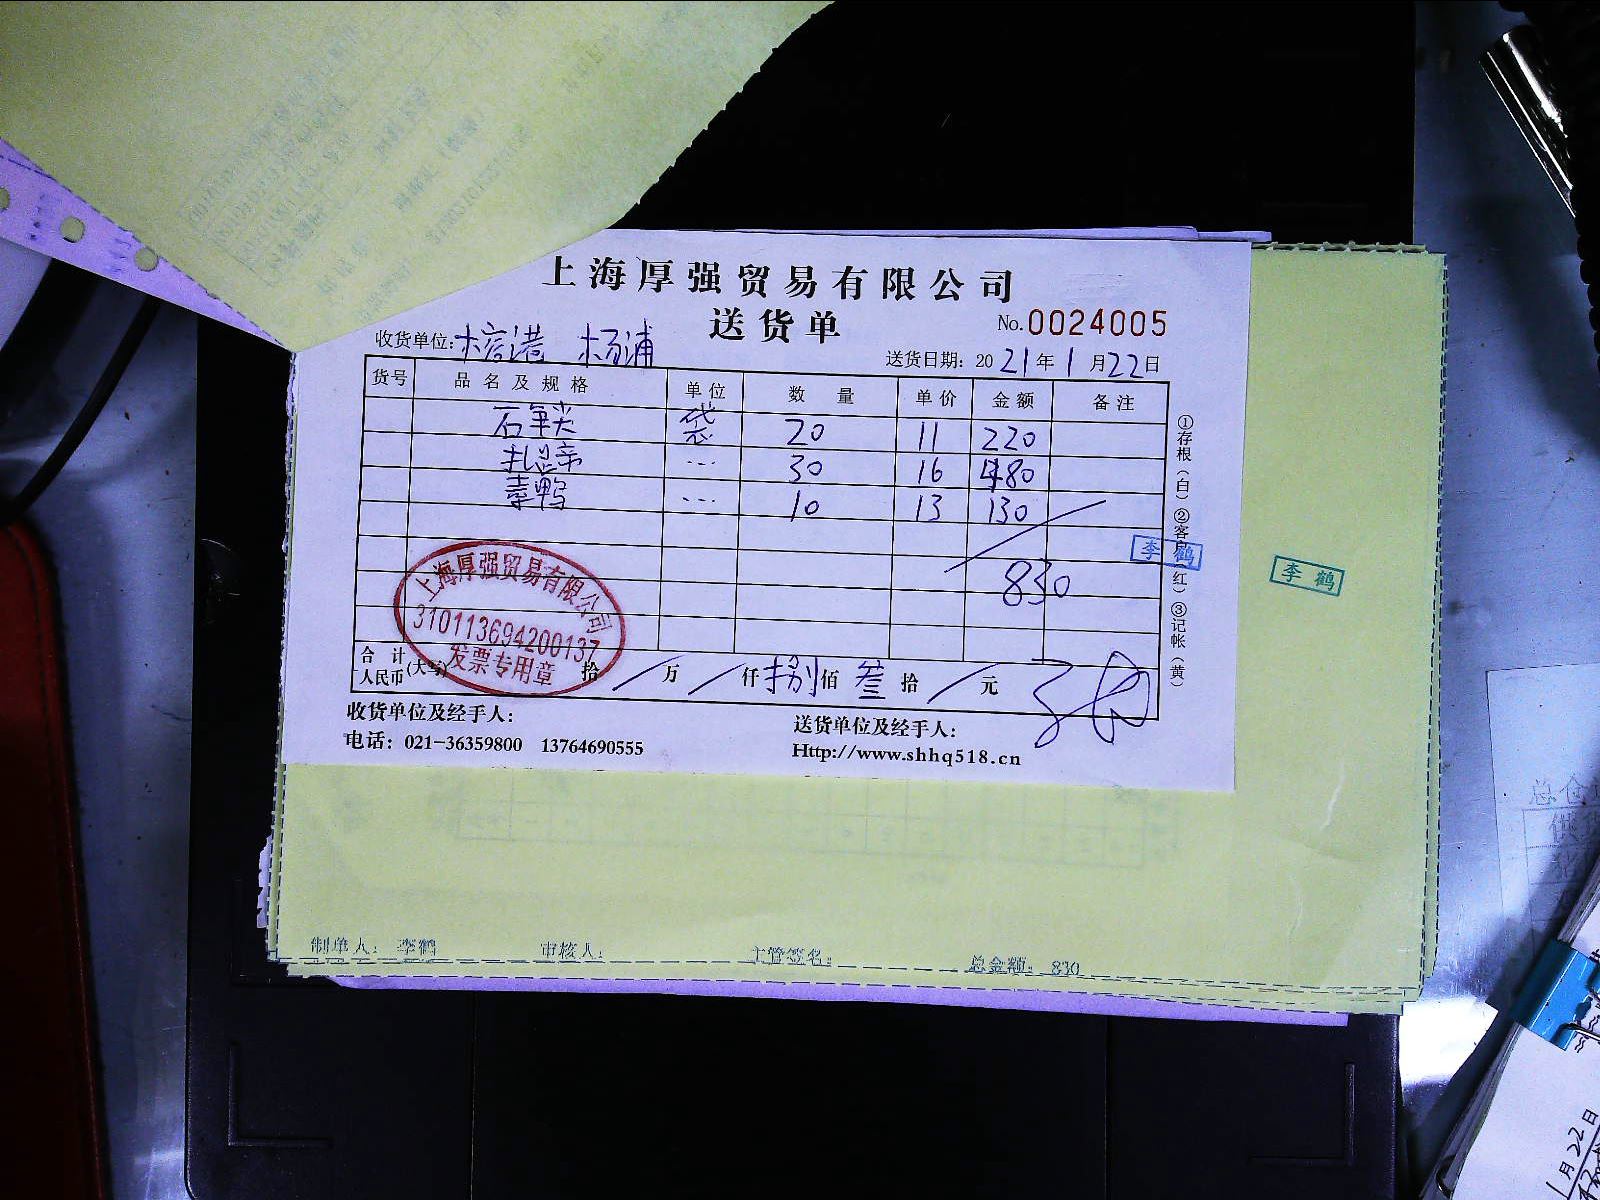 上海厚强贸易有限公司
送货单
No.0024005
收货单位: 杨浦
送货日期: 2021年1月22日
货号 品名及规格 单位 数量 单价 金额 备注
袋 20 11 220
--- 30 16 480
素鸭 --- 10 13 130
830
李鹤
李鹤
上海厚强贸易有限公司
310113694200137
发票专用章
合计人民币(大写) 拾/万/仟捌佰叁拾/元
收货单位及经手人:
送货单位及经手人:
电话: 021-36359800 13764690555
Http://www.shhq518.cn
①存根(白)②客户(红)③记帐(黄)
制单人: 李鹤 审核人: 主管签名: 总金额: 830
1月22日